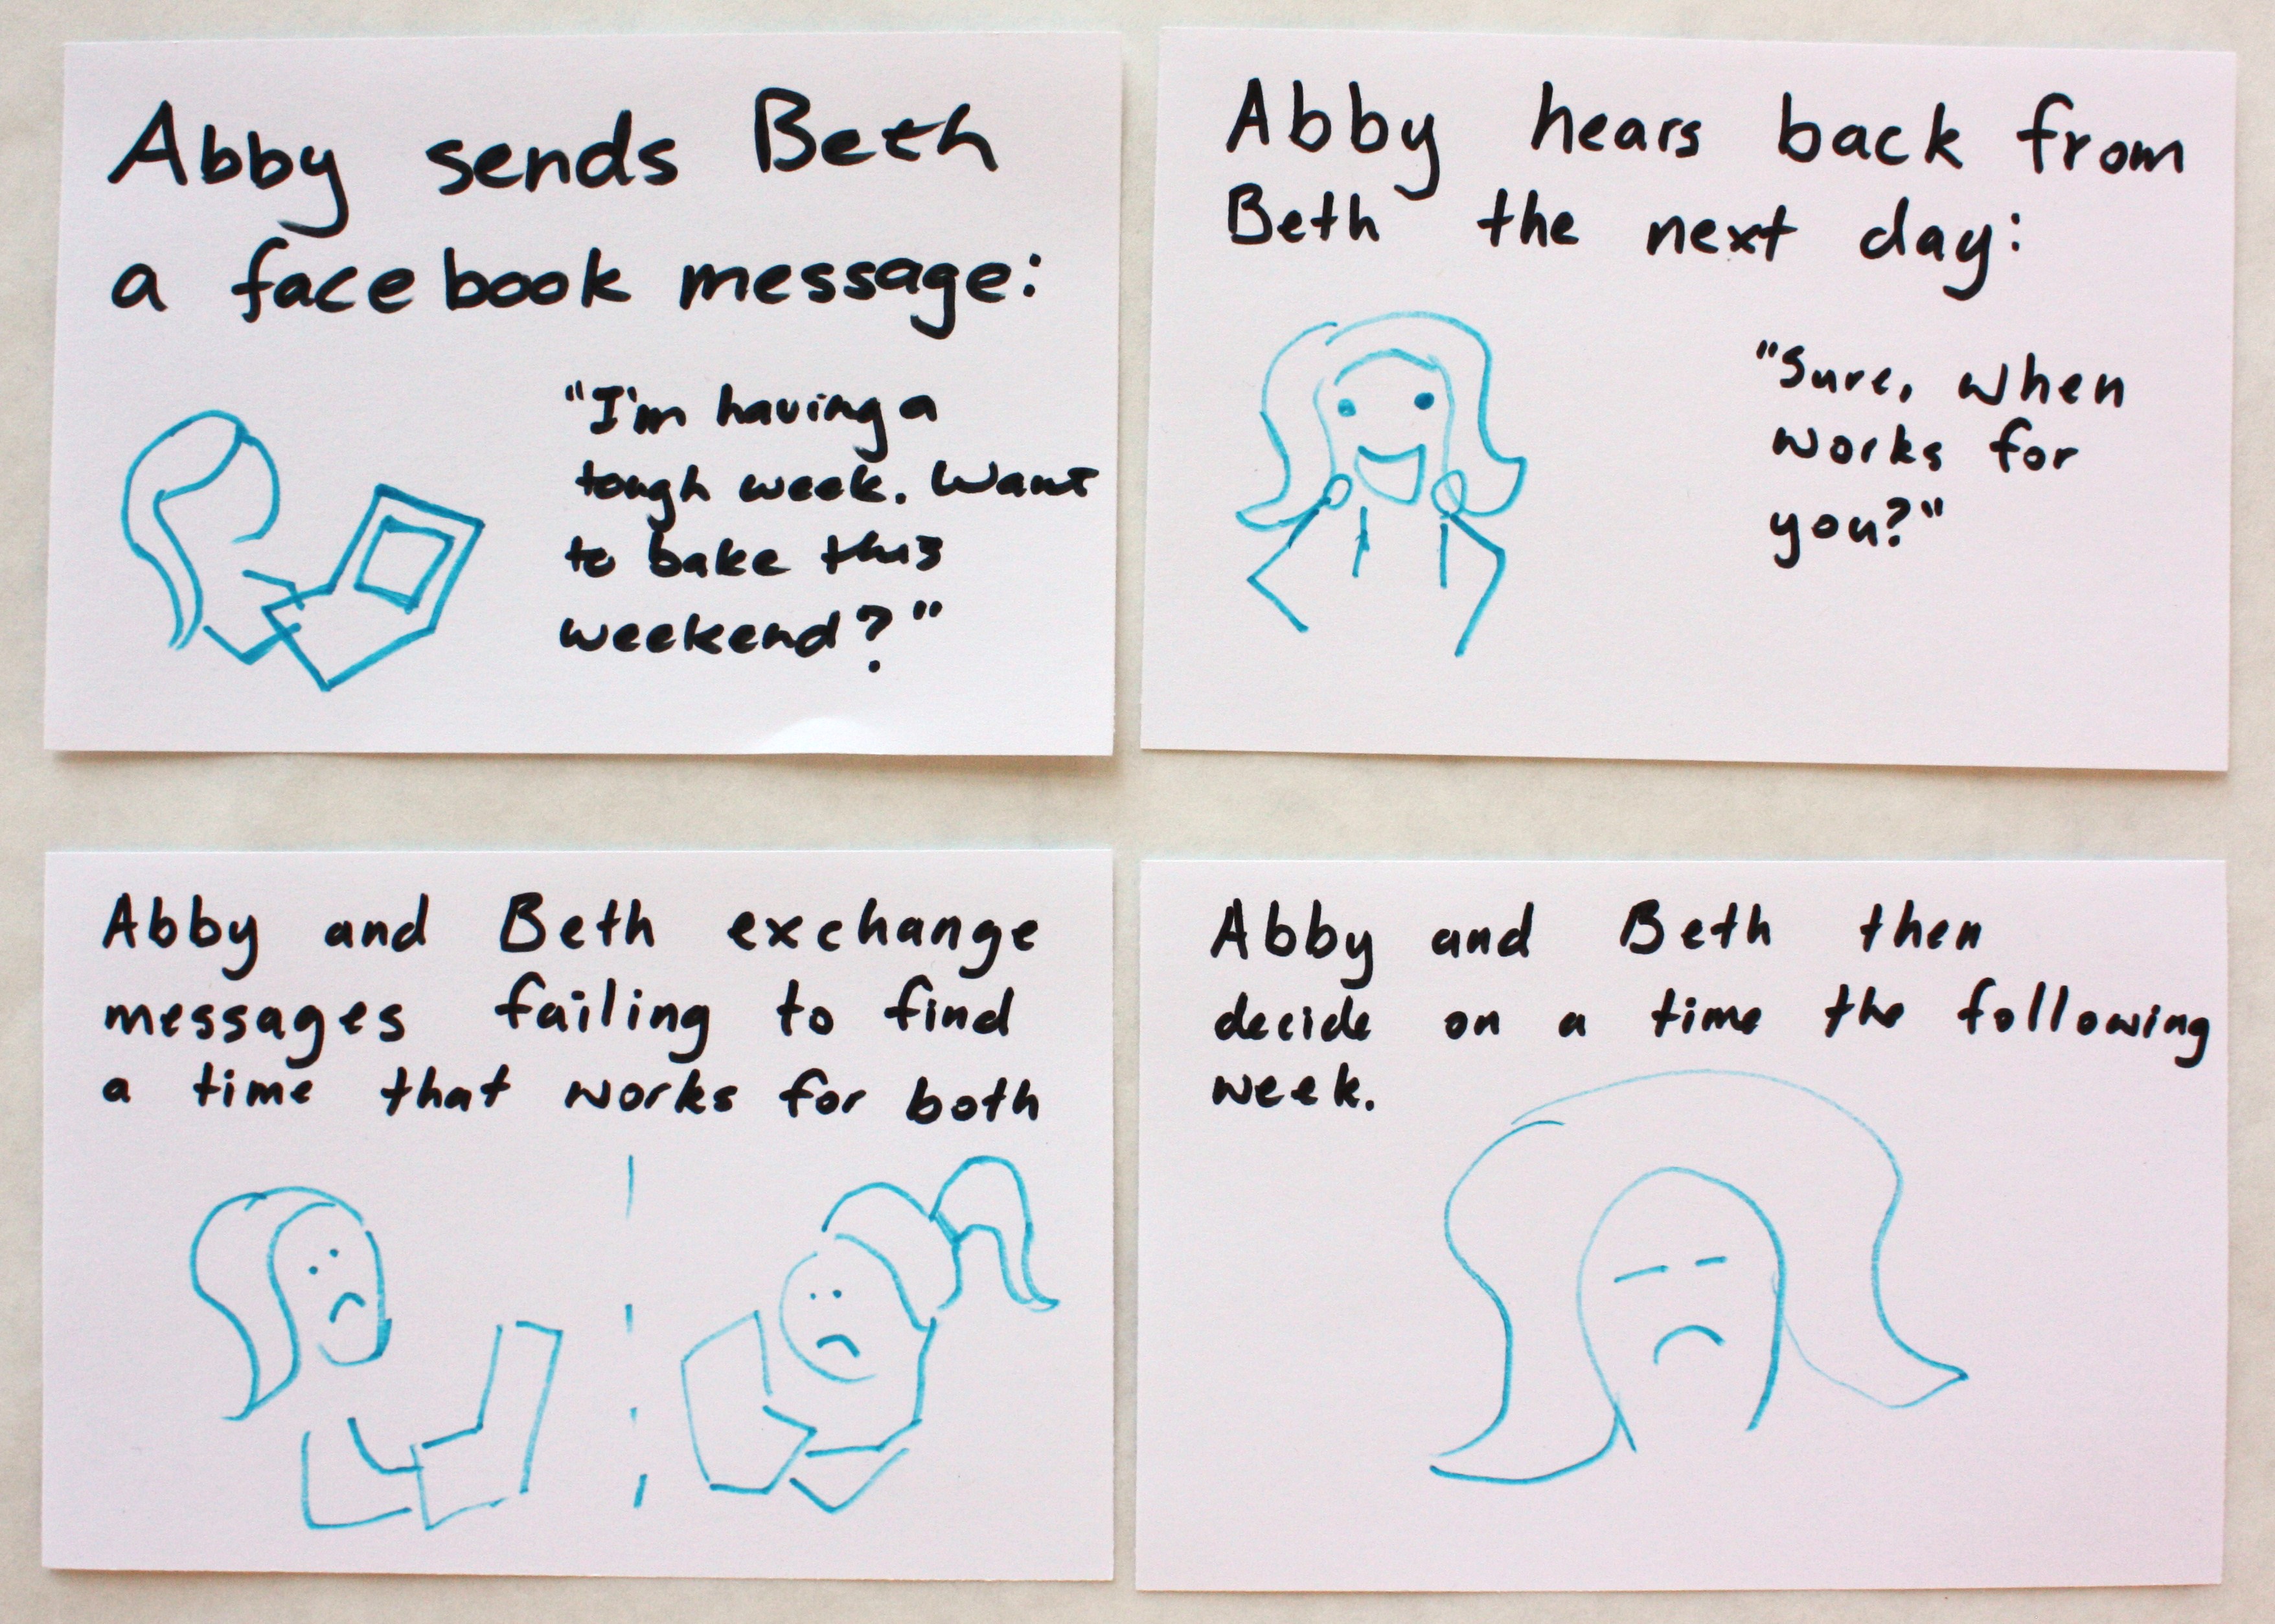 Abby sends Beth
a facebook message:
"I'm having a
tough week. Want
to bake this
weekend?"
Abby hears back from
Beth the next day:
"Sure, when
works for
you?"
Abby and Beth exchange
messages failing to find
a time that works for both
Abby and Beth then
decide on a time the following
week.